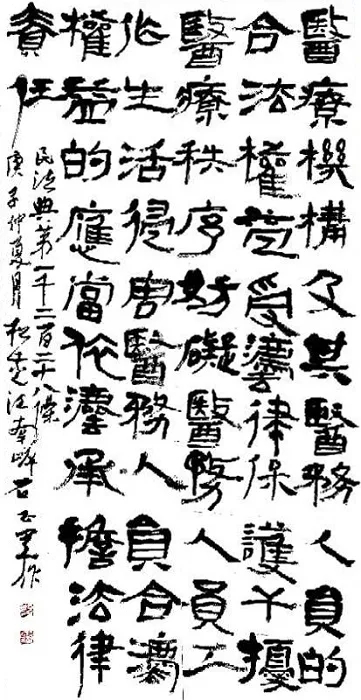 醫療機構及其醫務人員的
合法權益受灋律保護干擾
醫療秩序妨礙醫務人員工
作生活侵害醫務人員合灋
權益的應當依灋承擔法律
責任
民法典第一千二百二十八條
庚子仲夏月江南石玉作